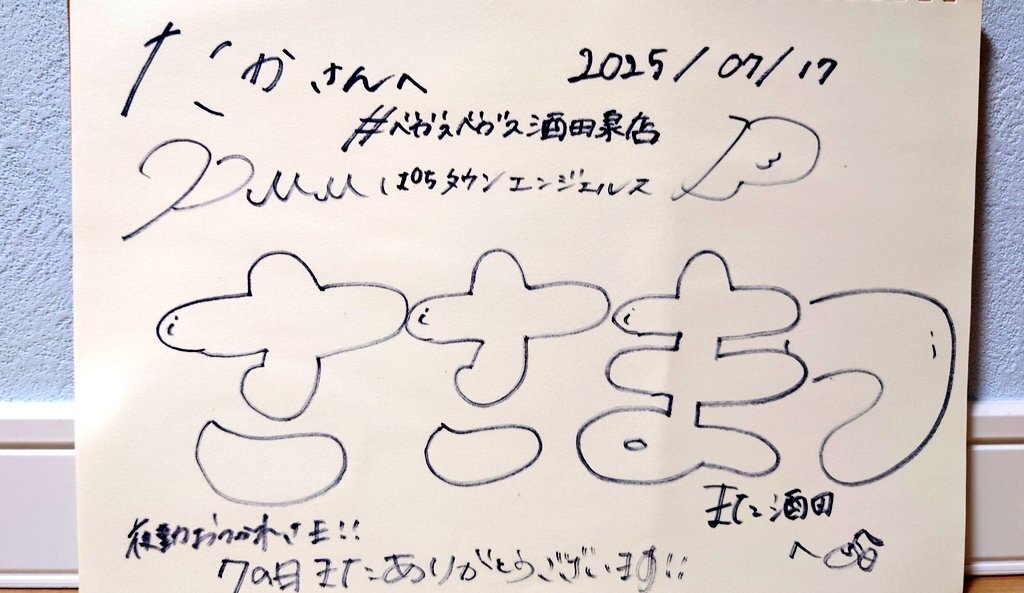 たかさんへ 2025/07/17
#ベガスベガス酒田泉店
タウンエンジェルス
ささまつ
また酒田
へ
夜勤おつかれさま!!
7の日またありがとうございます!!